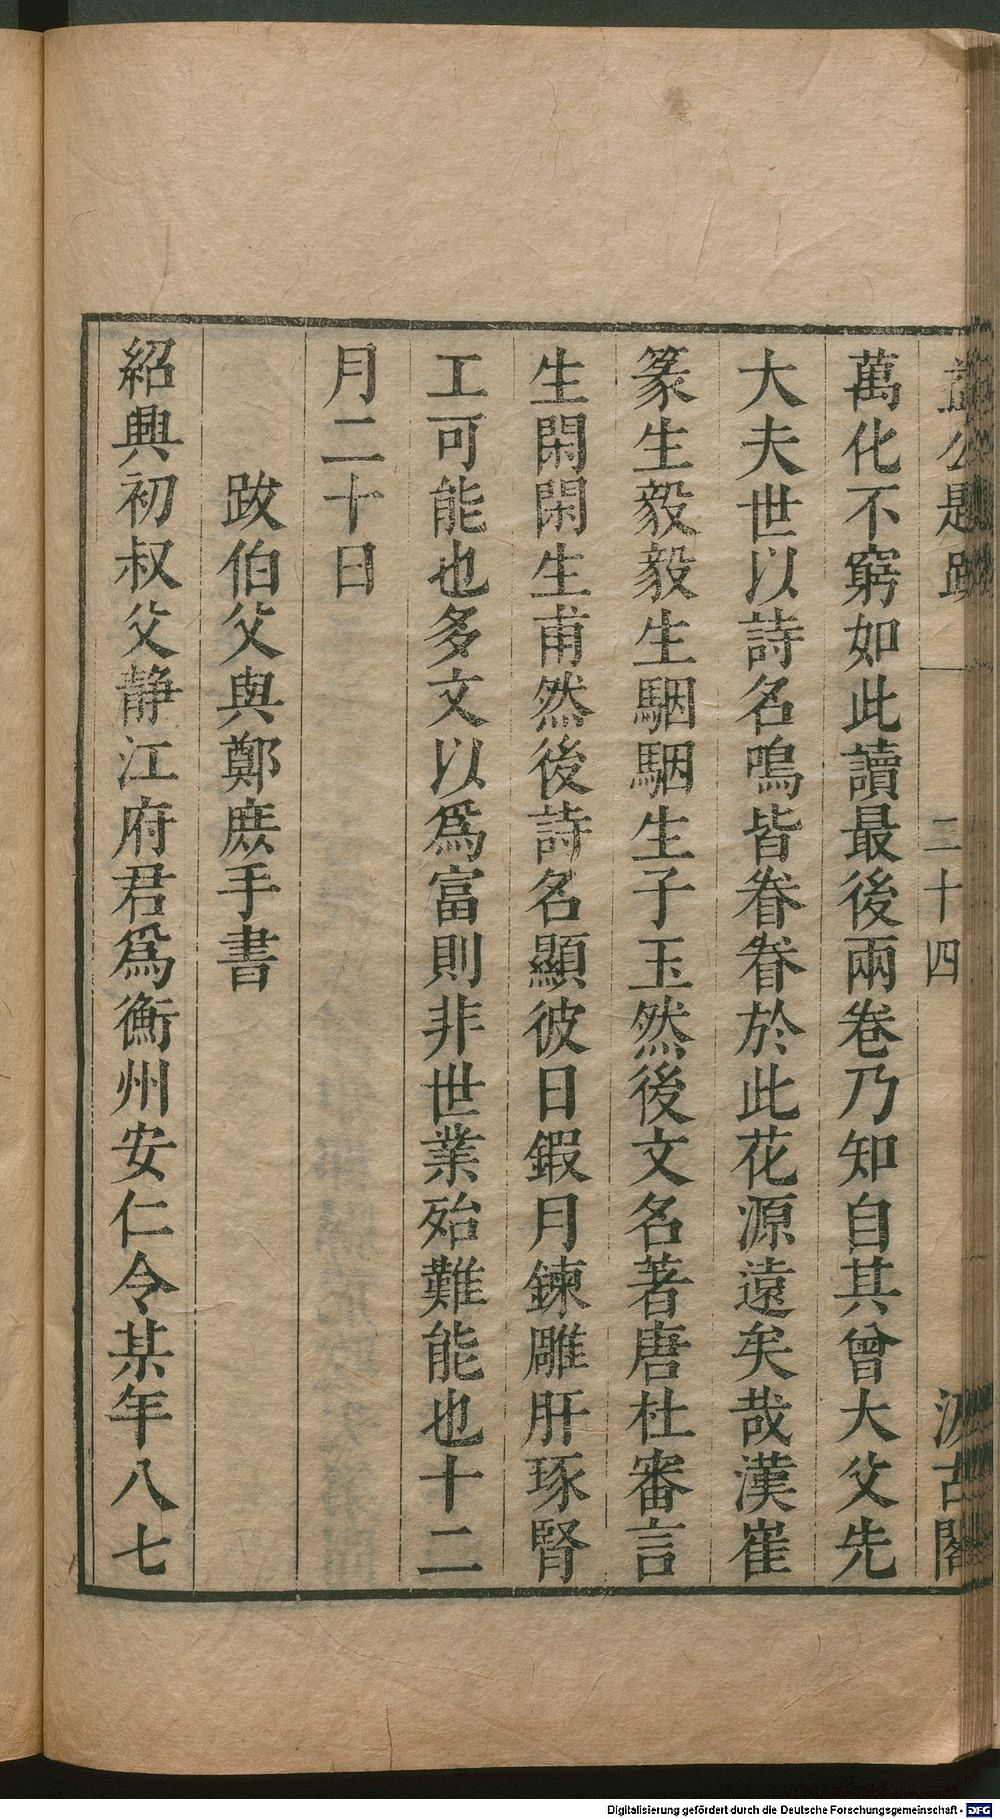 益公題跋 二十四 汲古閣
萬化不窮如此讀最後兩卷乃知自其曾大父先
大夫世以詩名鳴皆眷眷於此花源遠矣哉漢崔
篆生毅毅生駰駰生子玉然後文名著唐杜審言
生閑閑生甫然後詩名顯彼日鍜月鍊雕肝琢腎
工可能也多文以爲富則非世業殆難能也十二
月二十日
跋伯父與鄭庻手書
紹興初叔父靜江府君爲衡州安仁令某年八七
Digitalisierung gefördert durch die Deutsche Forschungsgemeinschaft - DFG